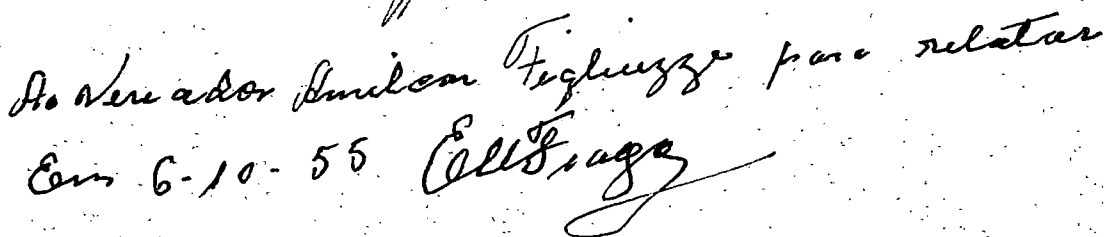 Ao Vereador Amilcar Figliuzzi para relatar
Em 6-10-55